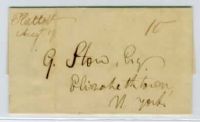 Augt 19
10
G. Stow, Esq
Elizabethtown,
N. York.